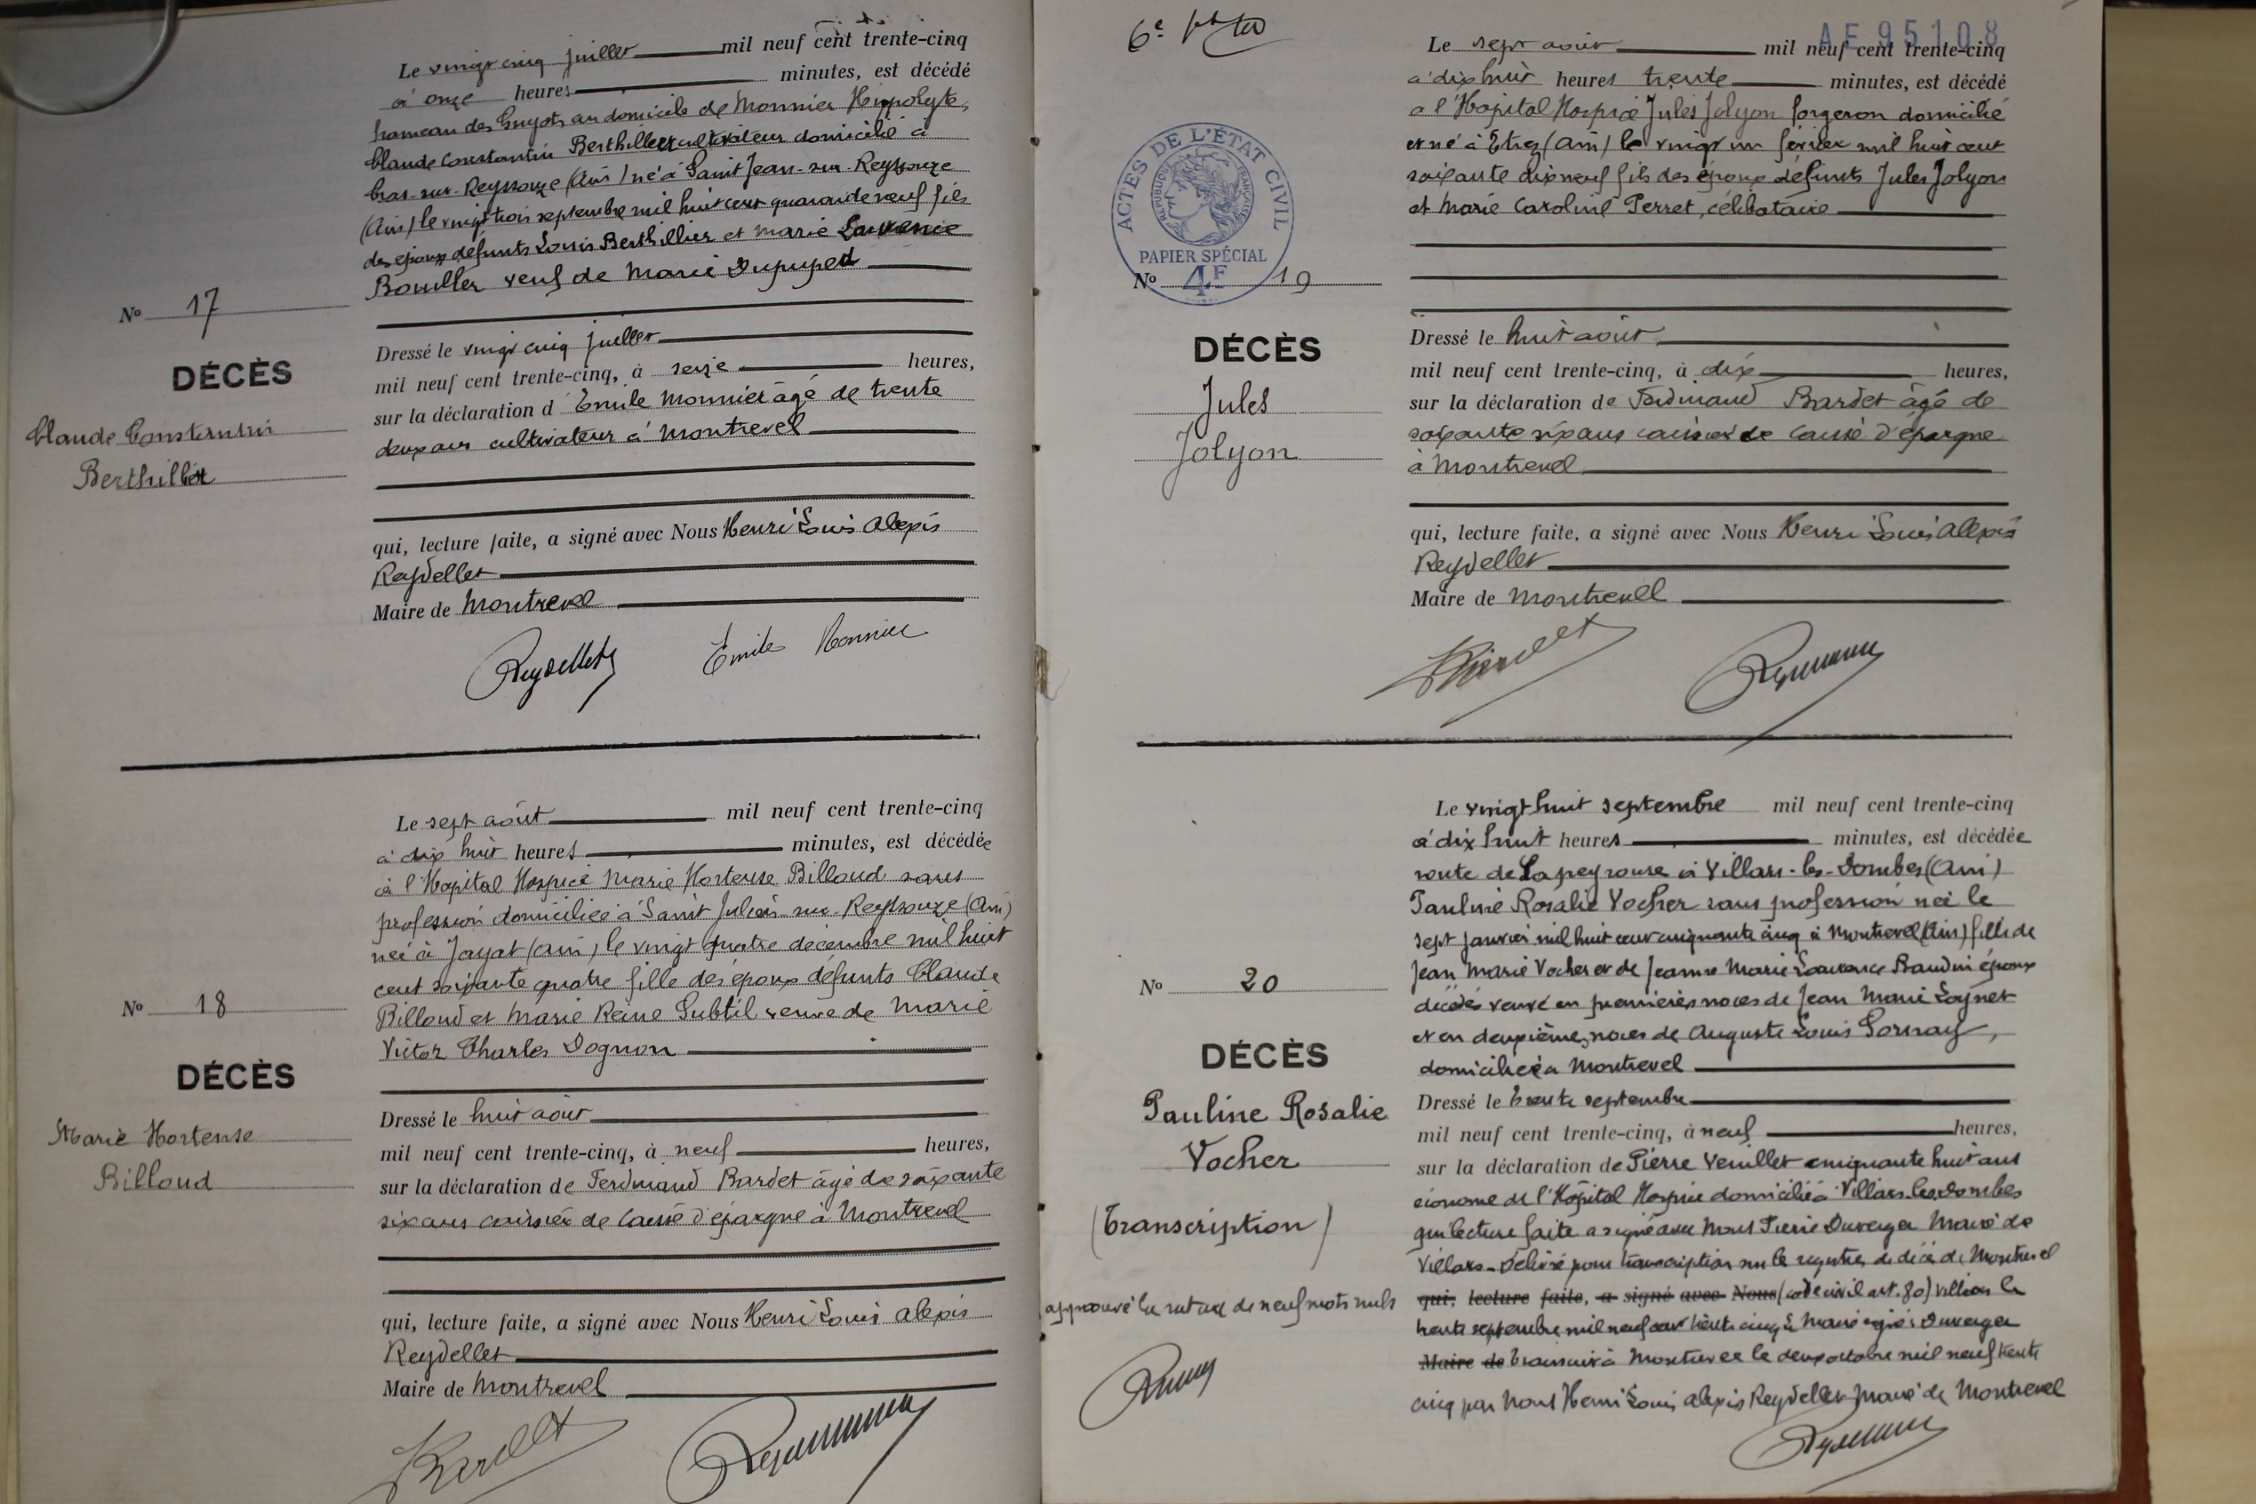 Le vingt cinq juillet mil neuf cent trente-cinq
à onze heures minutes, est décédé
hameau des Guyots au domicile de Monnier Hippolyte,
Claude Constantin Berthillier cultivateur domicilié à
Cras-sur-Reyssouze (Ain) né à Saint Jean-sur-Reyssouze
(Ain) le vingt trois septembre mil huit cent quarante neuf fils
des époux défunts Louis Berthillier et Marie Laurence
Bouiller veuf de Marie
No 17
DÉCÈS
Claude Constantin
Berthillier
Dressé le vingt cinq juillet
mil neuf cent trente-cinq, à seize heures,
sur la déclaration d'Emile Monnier âgé de trente
deux ans cultivateur à Montrevel
qui, lecture faite, a signé avec Nous Henri Louis Alexis
Reydellet
Maire de Montrevel
Reydellet Emile Monnier
Le sept août mil neuf cent trente-cinq
à dix huit heures minutes, est décédée
à l'Hopital Hospice Marie Hortense Billoud sans
profession domiciliée à Saint Julien-sur-Reyssouze (Ain)
née à Jayat (Ain) le vingt quatre décembre mil huit
cent soixante quatre fille des époux défunts Claude
Billoud et Marie Reine Subtil veuve de Marie
Victor Charles Dognon
No 18
DÉCÈS
Marie Hortense
Billoud
Dressé le huit août
mil neuf cent trente-cinq, à neuf heures,
sur la déclaration de Ferdinand Bardet âgé de soixante
six ans caissier de Caisse d'épargne à Montrevel
qui, lecture faite, a signé avec Nous Henri Louis Alexis
Reydellet
Maire de Montrevel
6e
AF 95108
Le sept août mil neuf cent trente-cinq
à dix huit heures trente minutes, est décédé
à l'Hopital Hospice Jules Jolyon forgeron domicilié
et né à Etrez (Ain) le vingt un février mil huit cent
soixante dix neuf fils des époux défunts Jules Jolyon
et Marie Caroline Perret, célibataire
ACTES DE L'ÉTAT CIVIL
RÉPUBLIQUE FRANÇAISE
PAPIER SPÉCIAL
4F
No 19
DÉCÈS
Jules
Jolyon
Dressé le huit août
mil neuf cent trente-cinq, à dix heures,
sur la déclaration de Ferdinand Bardet âgé de
soixante six ans caissier de Caisse d'épargne
à Montrevel
qui, lecture faite, a signé avec Nous Henri Louis Alexis
Reydellet
Maire de Montrevel
Le vingt huit septembre mil neuf cent trente-cinq
à dix huit heures minutes, est décédée
route de Lapeyrouse à Villars-les-Dombes (Ain)
Pauline Rosalie Vocher sans profession née le
sept janvier mil huit cent cinquante cinq à Montrevel (Ain) fille de
Jean Marie Vocher et de Jeanne Marie Laurence Baudin époux
décédés veuve en premières noces de Jean Marie Loynet
et en deuxième noces de Auguste Louis Sornay,
domiciliée à Montrevel
No 20
DÉCÈS
Pauline Rosalie
Vocher
(Transcription)
approuvé la rature de neuf mots nuls
Dressé le trente septembre
mil neuf cent trente-cinq, à neuf heures,
sur la déclaration de Pierre Veuillet cinquante huit ans
économe de l'Hôpital Hospice domicilié à Villars-les-Dombes
qui lecture faite a signé avec Nous Pierre Duverger Maire de
Villars - Délivré pour transcription sur le registre de décès de Montrevel
qui, lecture faite, a signé avec Nous (code civil art. 80) Villars le
trente septembre mil neuf cent trente cinq le Maire signé: Duverger
Maire de Transcrit à Montrevel le deux octobre mil neuf trente
cinq par Nous Henri Louis Alexis Reydellet Maire de Montrevel